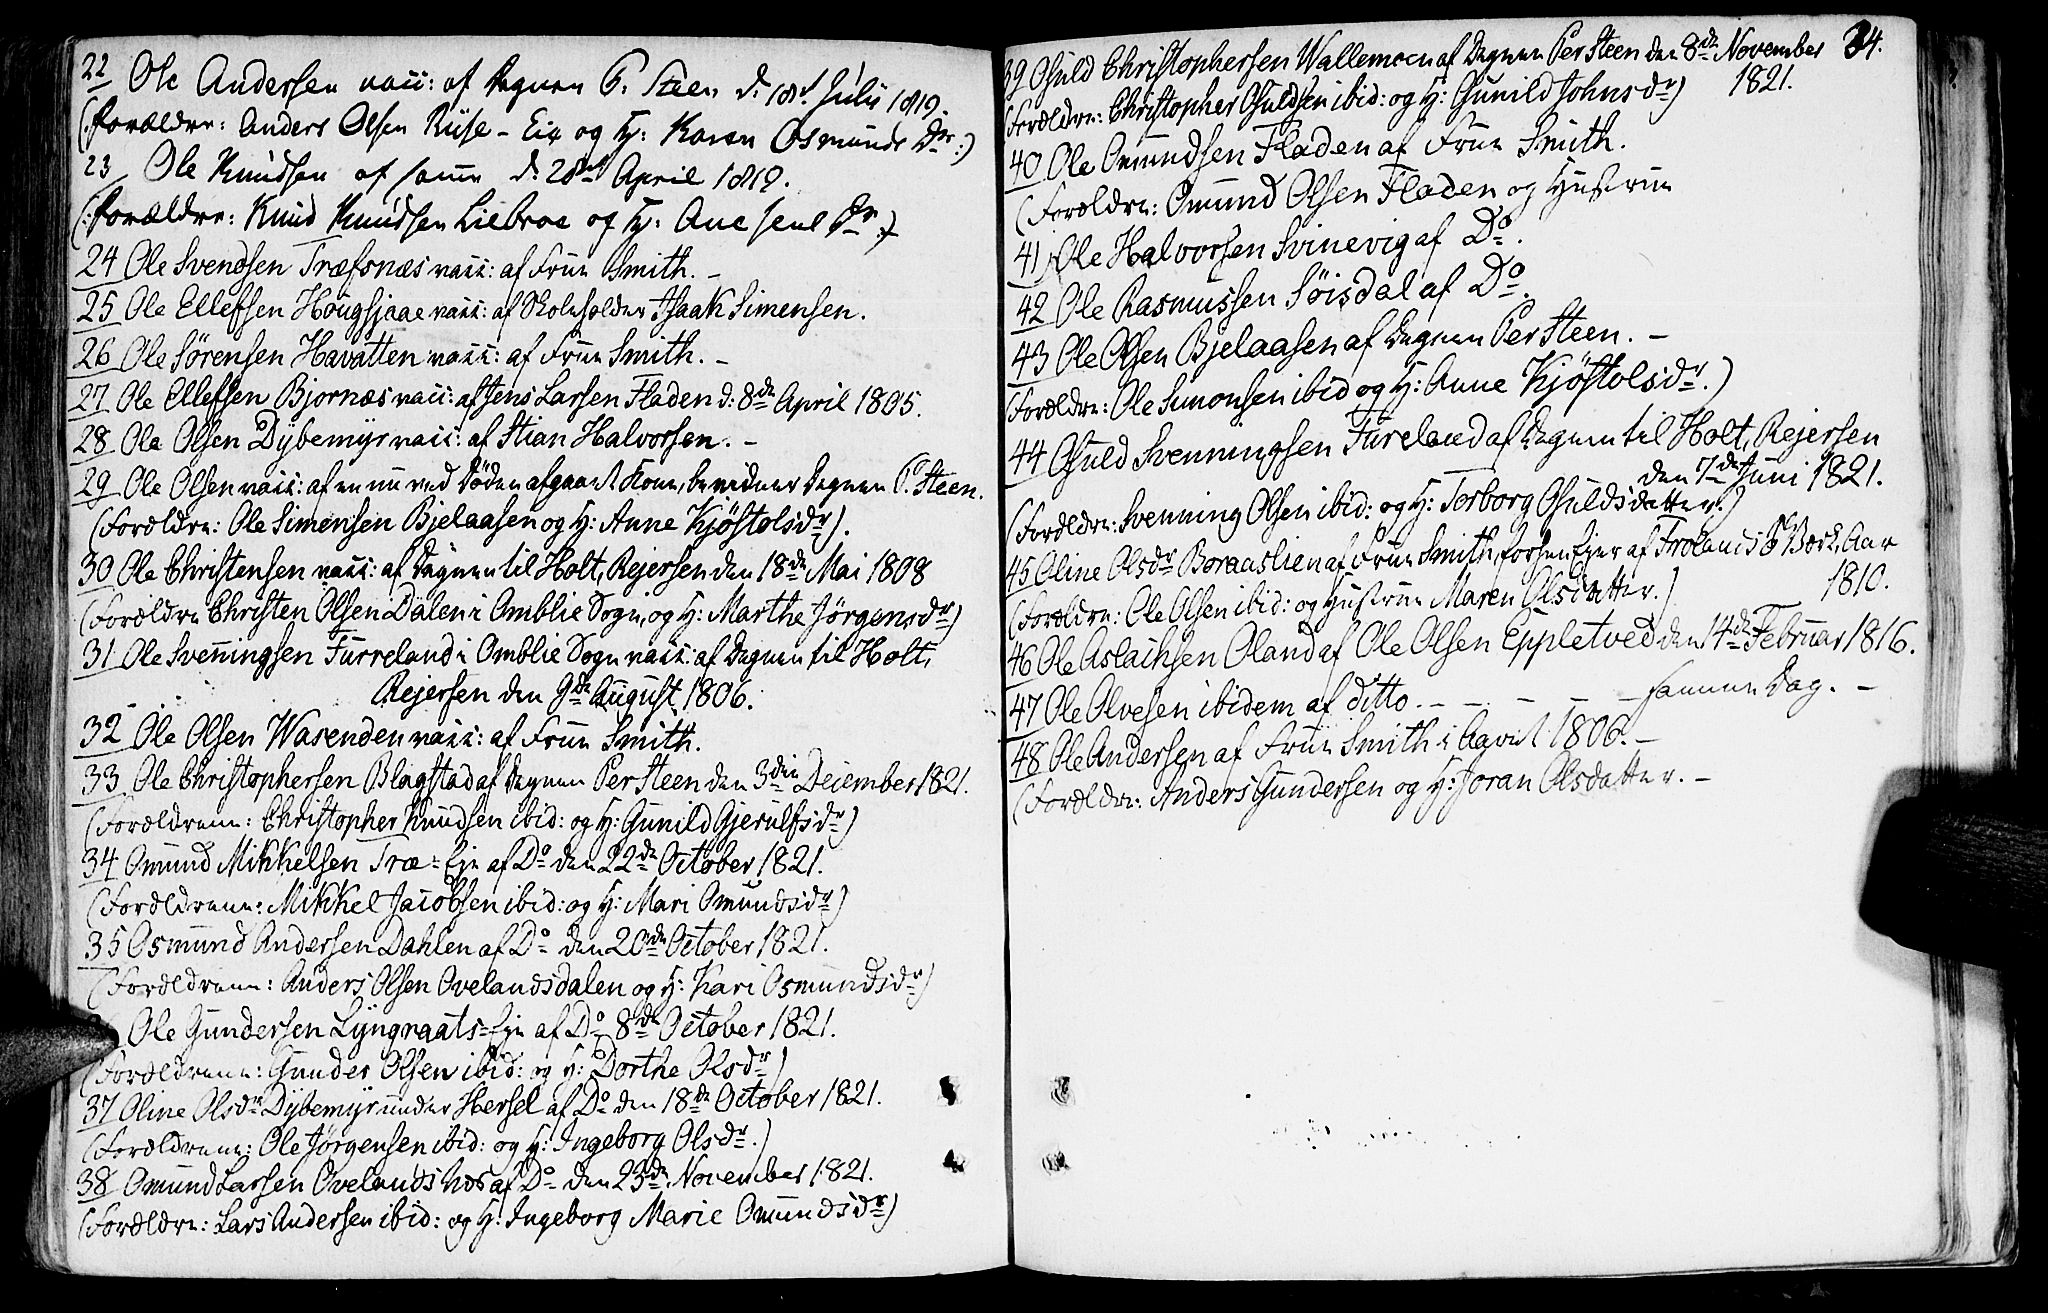 22 Ole Andersen vacc: af Degnen P. Steen d: 18de Julii 1819.
(: Forældre: Anders Olsen Riise-Eie og H: Karen Osmunds Dr :)
23 Ole Knudsen af samme d. 28de April 1819.
(: Forældre: Knud Knudsen Liebroe og H: Ane Dr :)
24 Ole Svendsen Træfsnæs vacc: af Frue Smith. -
25 Ole Ellefsen Hougsjaae vacc: af Skoleholder Isaak Simensen.
26 Ole Sörensen Havatten vacc: af Frue Smith. -
27 Ole Ellefsen Bjornæs vacc: af Jens Larsen Fladen d: 8de April 1805.
28 Ole Olsen Dybemyr vacc: af Stian Halvorsen. -
29 Ole Olsen vacc: af en nu ved Döden afgaaet Kone, bevidner Degnen P. Steen.
(Forældre: Ole Simensen Bjelaasen og H: Anne Kjöstolsdr).
30 Ole Christensen vacc: af Degnen til Holt, Rejersen den 18de Mai 1808
(Forældre Christen Olsen Dalen i Omblie Sogn, og H: Marthe Jörgensdr)
31 Ole Svenningsen Furreland i Omblie Sogn vacc: af Degnen til Holt,
Rejersen den 9de August 1806.
32 Ole Olsen Wasenden vacc: af Frue Smith.
33 Ole Christophersen Blagstad af Degnen Per Steen den 3die December 1821.
(Forældrene: Christopher Knudsen ibid: og H: Gunild Gjerulfsdr)
34 Omund Mikkelsen Træ-Eje af Do den 22de October 1821.
(Forældrene: Mikkel Jacobsen ibid: og H: Mari Omundsdr)
35 Osmund Andersen Dahlen af Do den 20de October 1821.
(Forældrene: Anders Olsen Ovelandsdalen og H: Kari Osmundsdr)
Ole Gundersen Lyngraats-Eje af Do 8de October 1821.
(Forældrene: Gunder Olsen ibid: og H: Dorthe Olsdr)
37 Oline Olsdr Dybemyr under Hersel af Do den 18de October 1821.
(Forældrene: Ole Jörgensen ibid: og H: Ingeborg Olsdr.)
38 Omund Larsen Ovelands Næs af Do den 23de November 1821.
(Forældre: Lars Andersen ibid: og H: Ingeborg Marie Omundsdr)
34.
39 Osuld Christophersen Wallemoen af Degnen Per Steen den 8de November
1821.
(Forældre: Christopher Osuldsen ibid: og H: Gunild Johnsdr)
40 Ole Omundsen Fladen af Frue Smith.
(Forældre: Omund Olsen Fladen og Hustrue
41 Ole Halvorsen Svinevig af Do.
42 Ole Rasmussen Söisdal af Do.
43 Ole Olsen Bjelaasen af Degnen Per Steen. -
(Forældre: Ole Simonsen ibid og H: Anne Kjöstolsdr.)
44 Osuld Svenningsen Fureland af Degnen til Holt, Rejersen
den 7de Juni 1821.
(Forældre: Svenning Olsen ibid: og H: Torborg Osuldsdatter.)
45 Oline Olsdr Boraaslien af Frue Smith, forhen Ejer af Frolands Værk, Aar
1810.
(Forældre: Ole Olsen ibid: og Hustrue Maren Olsdatter.)
46 Ole Aslachsen Oland af Ole Olsen Eppletved den 14de Februar 1816.
47 Ole Olvesen ibidem af ditto. - - - - - samme Dag. -
48 Ole Andersen af Frue Smith i Aaret 1806. -
(Forældre: Anders Gundersen og H: Joran Olsdatter. -